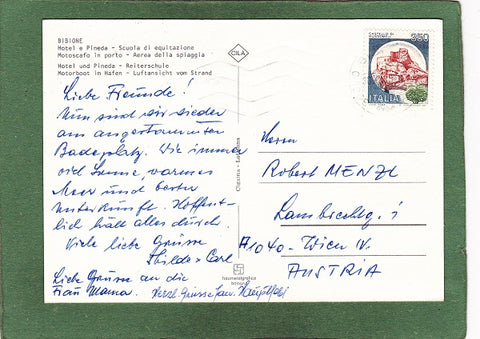 BIBIONE
Hotel e Pineda - Scuola di equitazione
Motoscafo in porto - Aerea della spiaggia
Hotel und Pineda - Reiterschule
Motorboot in Hafen - Luftansicht vom Strand
CILA
350
ITALIA
Liebe Freunde!
Nun sind wir wieder
am angestammten
Badeplatz. Wie immer
viel Sonne, warmes
Meer und beste
Unterkunft. Hoffent-
lich hält alles durch.
Viele liebe Grüsse
Ihilde + Carl
Liebe Grüsse an die
Frau Mama.
Herzl. Grüsse
Herrn
Robert MENZL
Lambrechtg. 1
A1040-Wien IV.
AUSTRIA